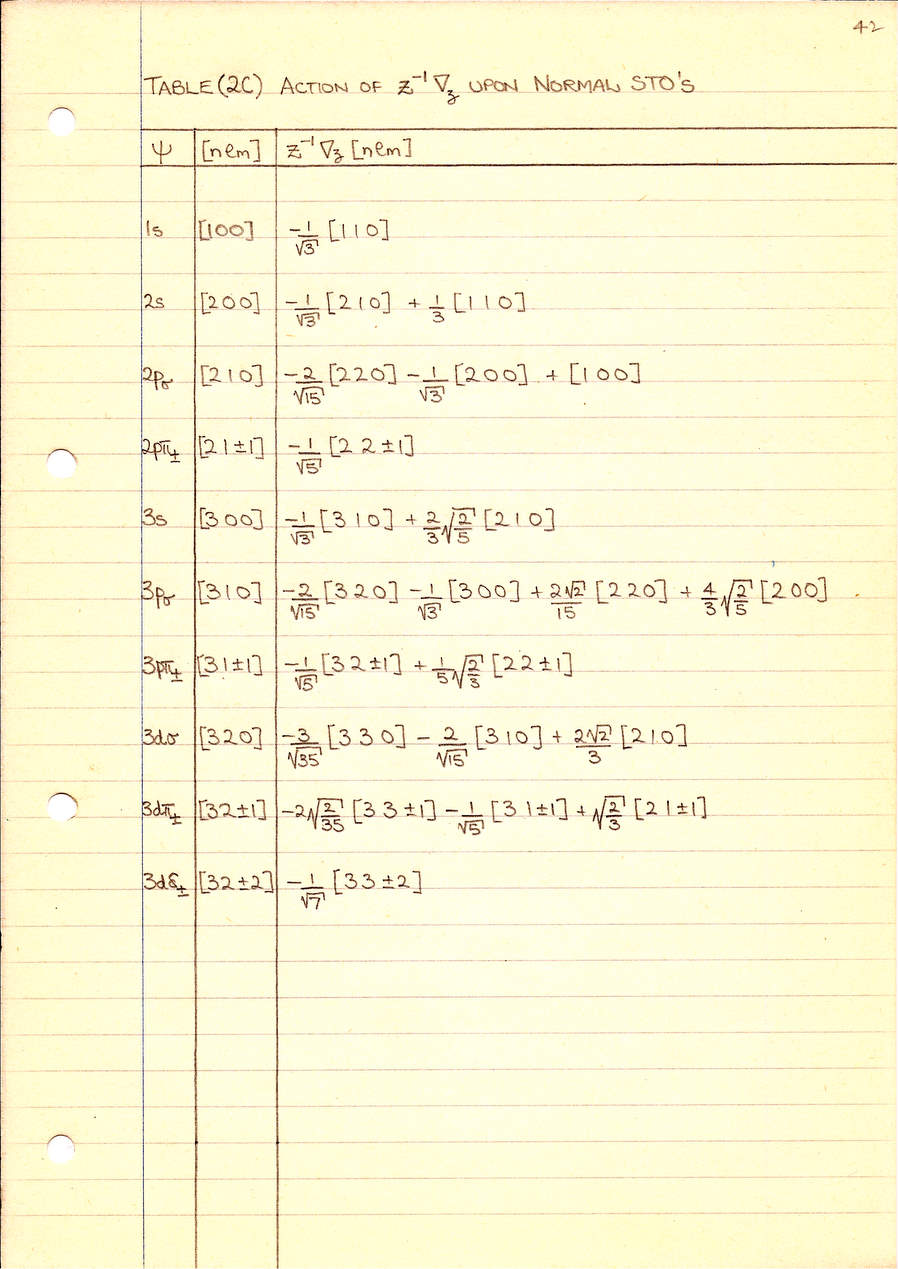 42
TABLE (2C) ACTION OF Z⁻¹∇_z UPON NORMAL STO'S
ψ [nℓm] Z⁻¹∇_z [nℓm]
1s [100] -1/√3 [110]
2s [200] -1/√3 [210] + 1/3 [110]
2pσ [210] -2/√15 [220] - 1/√3 [200] + [100]
2pπ± [21±1] -1/√5 [22±1]
3s [300] -1/√3 [310] + 2/3 √(2/5) [210]
3pσ [310] -2/√15 [320] - 1/√3 [300] + 2√2/15 [220] + 4/3 √(2/5) [200]
3pπ± [31±1] -1/√5 [32±1] + 1/5 √(2/3) [22±1]
3dσ [320] -3/√35 [330] - 2/√15 [310] + 2√2/3 [210]
3dπ± [32±1] -2√(2/35) [33±1] - 1/√5 [31±1] + √(2/3) [21±1]
3dδ± [32±2] -1/√7 [33±2]